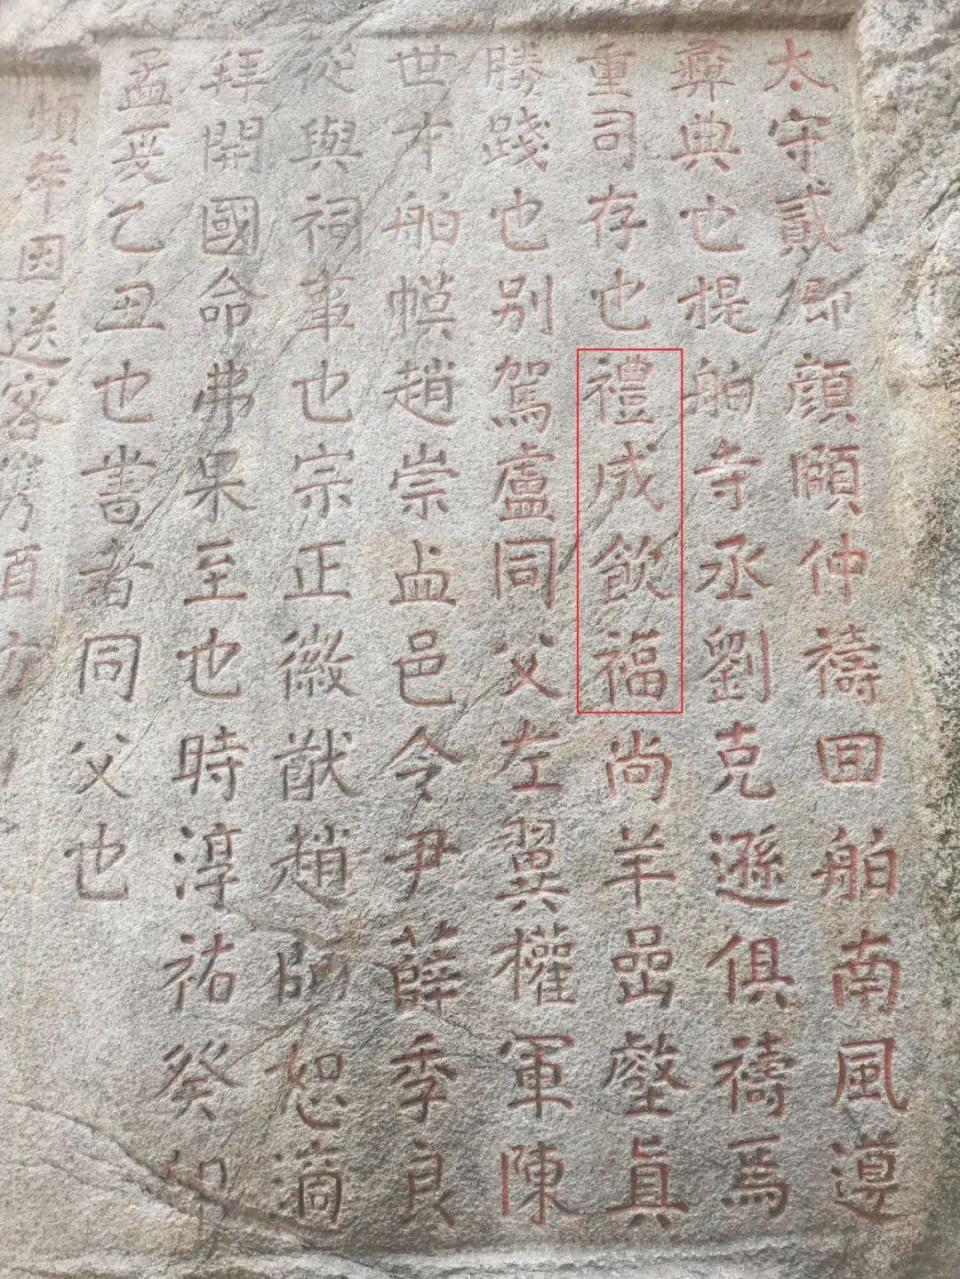 太守貳卿顏頤仲禱回舶南風遵
彝典也提舶寺丞劉克遜俱禱焉
重司存也禮成飲福尚羊嵒壑眞
勝踐也别駕盧同父左翼權軍陳
世才舶幙趙崇邑令尹薛季良
從與祠事也宗正徽猷趙師恕適
拜開國命弗果至也時淳祐癸卯
孟夏乙丑也書者同父也
頻年因送客